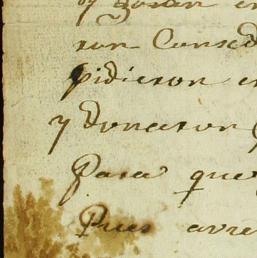 ron Consed
pidieron en
y Donaron
Para que
Pues avre